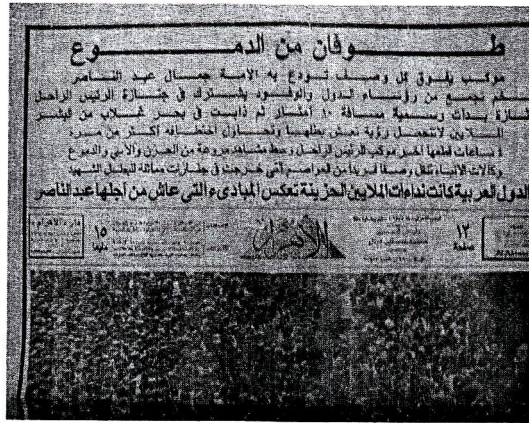 طوفان من الدموع
موكب يفوق كل وصف تودع به الأمة جمال عبد الناصر
تجمع من رؤساء الدول والوفود يشترك في جنازة الرئيس الراحل
بدأت رسمية مسافة ١٠ أمتار ثم ذابت في بحر غلاب من البشر
الملايين لا تتحمل رؤية نعش بطلها وتحاول اختطافه أكثر من مرة
ساعات قطعها آخر موكب للرئيس الراحل وسط مشاهد مروعة من الحزن والأسى والدموع
وكالات الأنباء تنقل وصفا فريدا من العواصم التي خرجت في جنازات مماثلة للبطل الشهيد
الدول العربية كانت نداءات الملايين الحزينة تعكس المبادىء التي عاش من أجلها عبد الناصر
١٥
مليما
الأهرام
١٢
صفحة